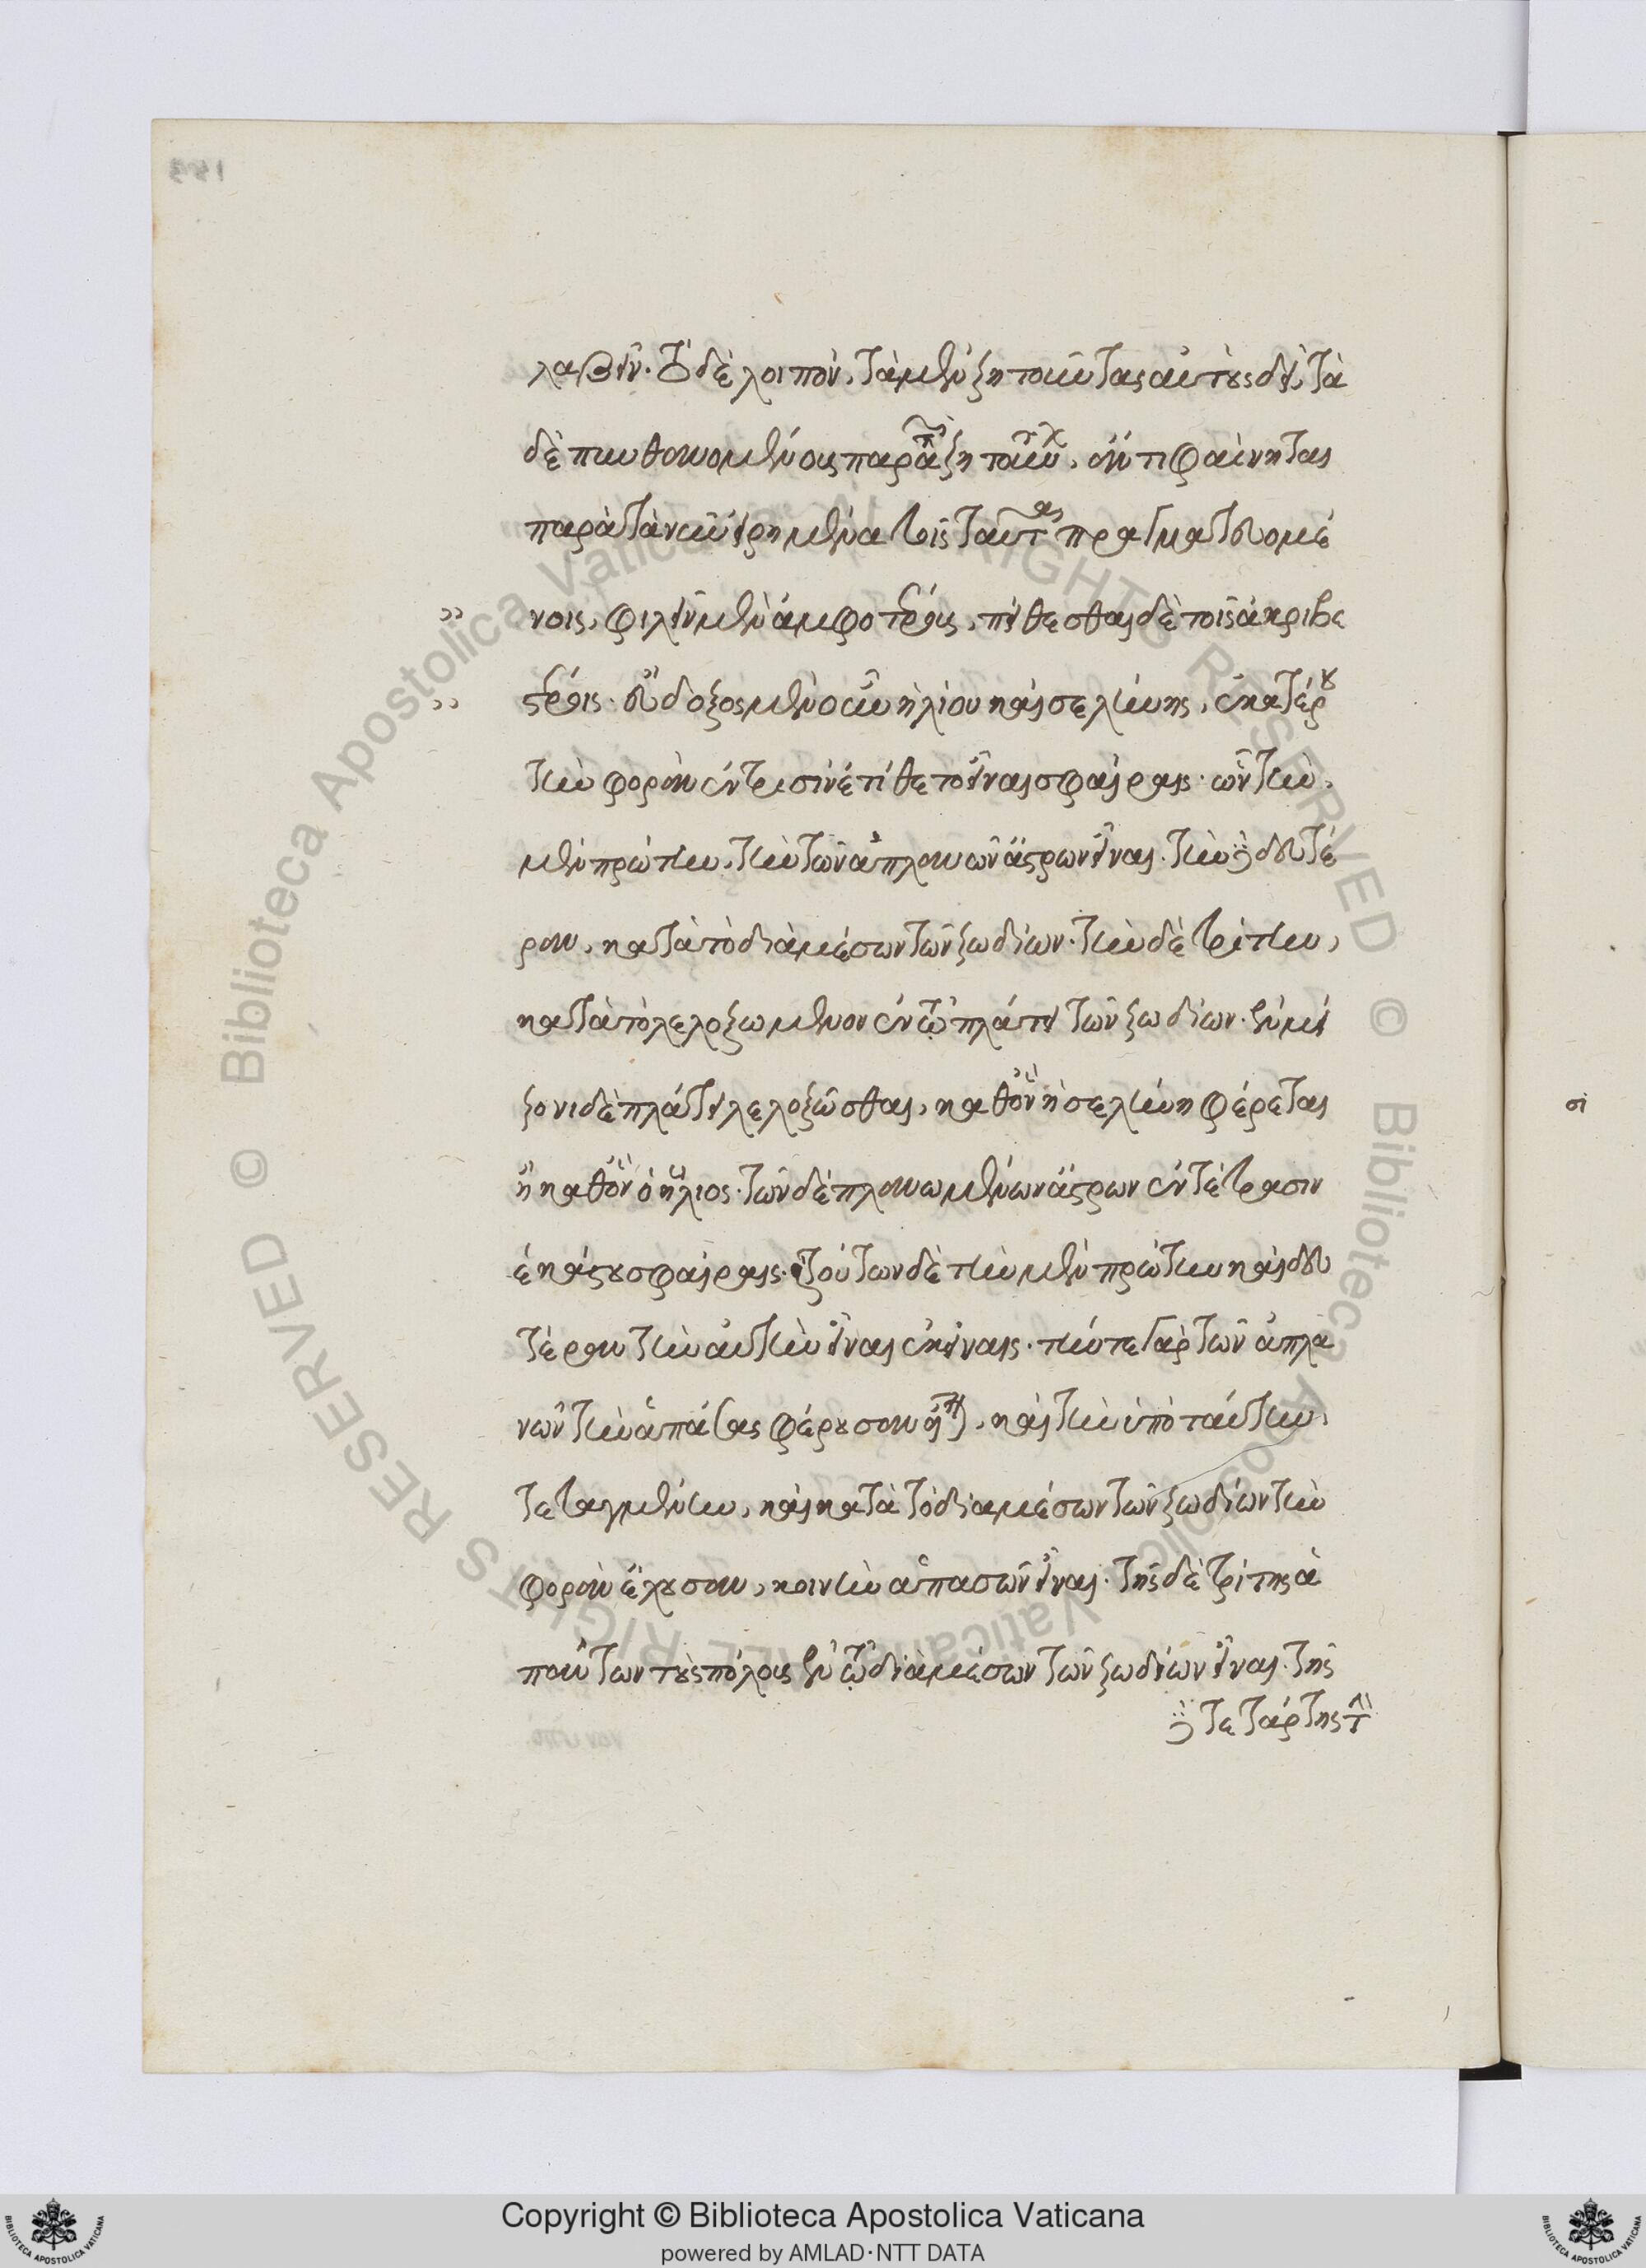 λαβεῖν. τὸ δὲ λοιπόν, τὰ μὲν ζητοῦντας αὐτοὺς δεῖ, τὰ
δὲ πυνθανομένους παρὰ τῶν ζητούντων, ἄν τι φαίνηται
παρὰ τὰ νῦν εἰρημένα τοῖς ταῦτα πραγματευομέ
νοις, φιλεῖν μὲν ἀμφοτέρους, πείθεσθαι δὲ τοῖς ἀκριβε
στέροις. εὔδοξος μὲν οὖν ἡλίου καὶ σελήνης, ἑκατέρου
τὴν φορὰν ἐν τρισὶν ἐτίθετο εἶναι σφαίραις. ὧν τὴν
μὲν πρώτην, τὴν τῶν ἀπλανῶν ἄστρων εἶναι. τὴν δὲ δευτέ
ραν, κατὰ τὸ διὰ μέσων τῶν ζωδίων. τὴν δὲ τρίτην,
κατὰ τὸ λελοξωμένον ἐν τῷ πλάτει τῶν ζωδίων. ἐν μεί
ζονι δὲ πλάτει λελοξῶσθαι, καθ' ὃν ἡ σελήνη φέρεται
ἢ καθ' ὃν ὁ ἥλιος. τῶν δὲ πλανωμένων ἄστρων ἐν τέτρασιν
ἑκάστου σφαίραις. τούτων δὲ τὴν μὲν πρώτην καὶ δευ
τέραν τὴν αὐτὴν εἶναι ἐκείναις. τήν τε γὰρ τῶν ἀπλα
νῶν τὴν ἁπάσας φέρουσαν εἶναι, καὶ τὴν ὑπὸ ταύτην
τεταγμένην, καὶ κατὰ τὸ διὰ μέσων τῶν ζωδίων τὴν
φορὰν ἔχουσαν, κοινὴν ἁπασῶν εἶναι. τῆς δὲ τρίτης ἁ
πάντων τοὺς πόλους ἐν τῷ διὰ μέσων τῶν ζωδίων εἶναι. τῆς
δὲ τετάρτης τὴν